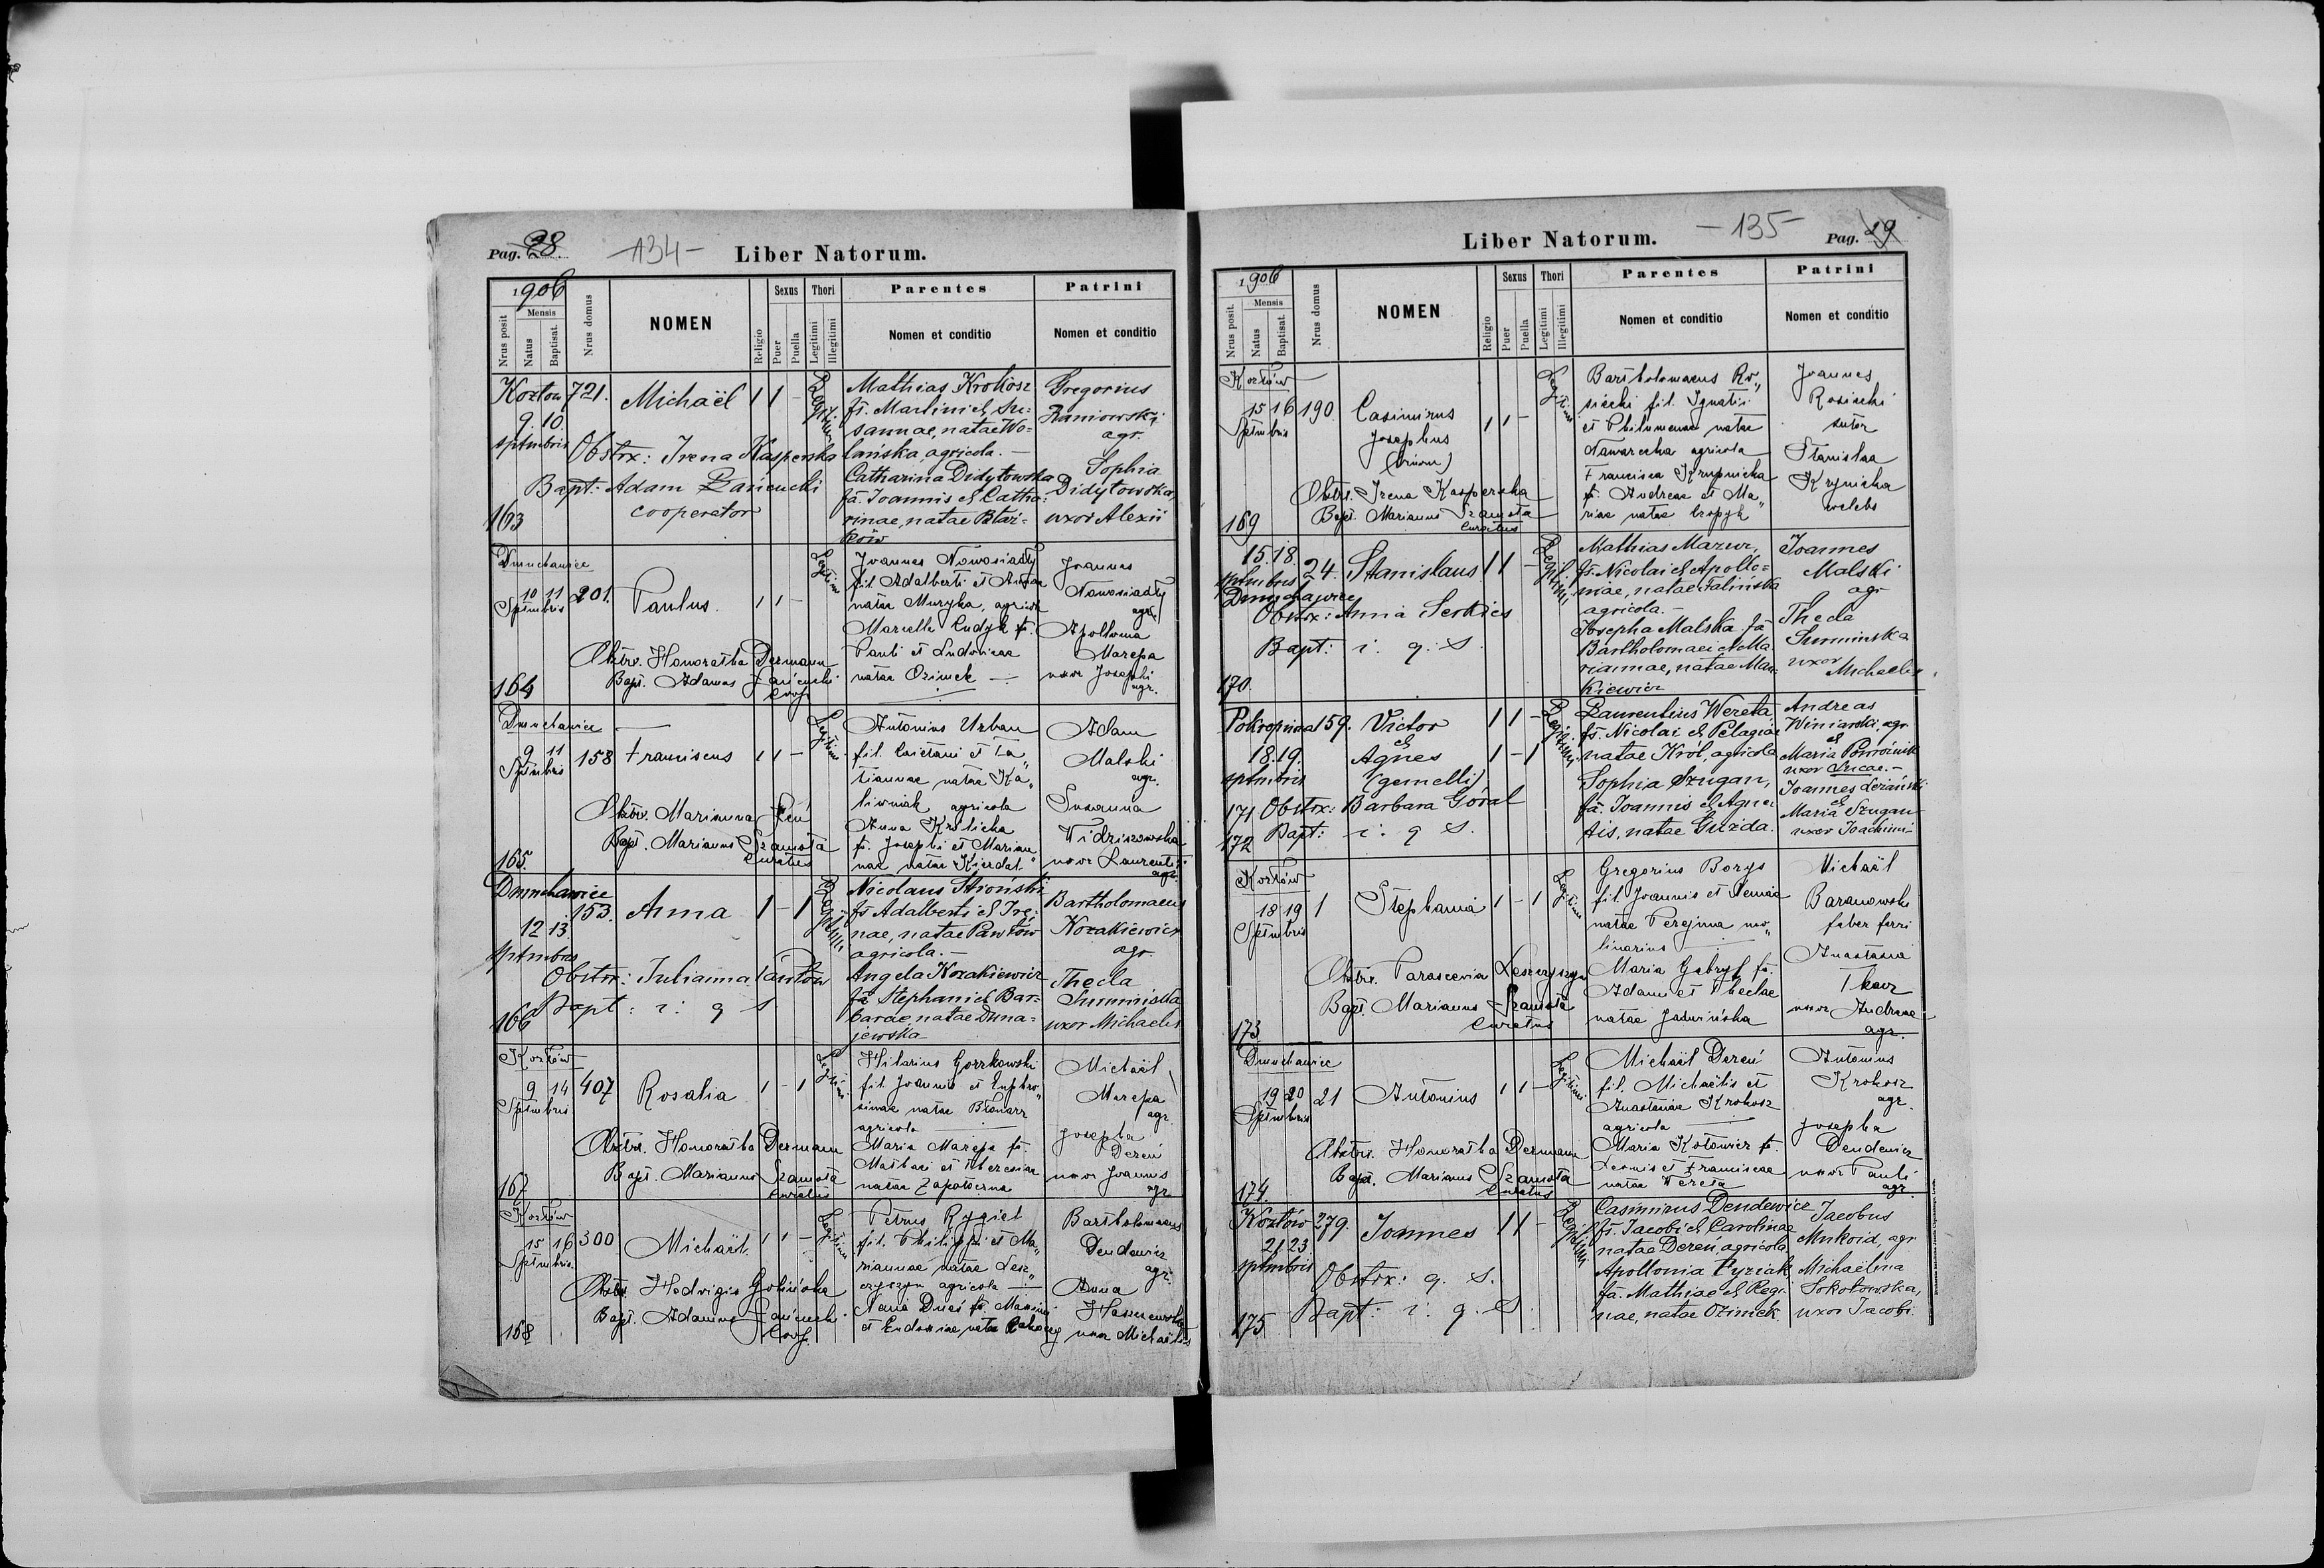 Pag. 28.
-134-
Liber Natorum.
1906
Nrus posit
Mensis
Natus
Baptisat.
Nrus domus
NOMEN
Religio
Sexus
Puer
Puella
Thori
Legitimi
Illegitimi
Parentes
Nomen et conditio
Patrini
Nomen et conditio
Kozłów 721. Michaël 1 1 -
9. 10.
septmbris
Obstrx: Irena Kasperska
Bapt: Adam Łańcucki
cooperator
163
Legitimi
Mathias Krokosz
fs. Martini et Su=
sannae, natae Wo=
lańska, agricola. -
Catharina Didytowska
fa. Joannis et Catha=
rinae, natae
Gregorius
agr.
Sophia
Didytowska,
uxor Alexii
Dmuchawice
10 11 201. Paulus. 1 1 -
Sptmbris
Obstr. Honoratha Dermann
Bapt. Adamus Łańcucki
Coop.
164
Legitimi
Joannes Nowosiadły
fil. Adalberti et Annae
natae Muzyka, agricola
Marcella Cudyk fa.
Pauli et Ludovicae
natae Ozimek -
Joannes
Nowosiadły
agr.
Apollonia
Marepa
uxor Josephi
agr.
Dmuchawice
9 11 158 Franciscus 1 1 -
Sptmbris
Obstr. Marianna
Bapt. Marianus Szamota
Curatus
165.
Legitimi
Antonius Urban
fil. Caietani et Ta„
tiannae natae Ka„
liwniak agricola
Anna Krolicka
fa. Josephi et Marian„
nae natae
Adam
Malski
agr.
Susanna
uxor Laurentii
agr.
Dmuchawice
153. Anna 1 - 1
12 13
sptmbris
Obstrx: Julianna Pawłow
Bapt: i: q S
166
Legitimi
Nicolaus Stroński
fs Adalberti et Ire=
nae, natae Pawłów
agricola. -
Angela Kozakiewicz
fa Stephani et Bar=
barae, natae Duna=
jewska
Bartholomaeus
Kozakiewicz
agr.
Thecla
Suminska
uxor Michaelis
Kozłów
9 14 407 Rosalia 1 - 1
Sptmbris
Obstr. Honoratha Dermann
Bapt. Marianus Szamota
Curatus
167
Legitimi
Hilarius Gorzkowski
fil. Joannis et Euphro„
sinae natae Bednarz
agricola
Maria Marepa fa.
Mathaei et Theresiae
natae Zapotoczna
Michaël
Marepa
agr
Josepha
Dereń
uxor Joannis
agr
Kozłów
15 16 300 Michaël 1 1 -
Sptmbris.
Obstr. Hedvigis Golińska
Bapt. Adamus Łańcucki
Coop.
168
Legitimi
Petrus Rygiel
fil. Philippi et Ma„
riannae natae Lesz„
czyszyn agricola
fa. Maximi
et Eudoxiae, natae
Bartholomaeus
Dendewicz
agr.
Anna
uxor Michaëlis
Liber Natorum.
-135-
Pag. 29
1906
Nrus posit.
Mensis
Natus
Baptisat.
Nrus domus
NOMEN
Religio
Sexus
Puer
Puella
Thori
Legitimi
Illegitimi
Parentes
Nomen et conditio
Patrini
Nomen et conditio
Kozłów
15 16 190 Casimirus 1 1 -
Sptmbris
Josephus
(binom)
Obstr. Irena Kasperska
Bapt. Marianus Szamota
Curatus
169
Legitimi
Bartholomaeus Ro„
siecki fil. Ignatii
et Philumenae natae
Nawarecka agricola
Francisca Krupnicka
fa. Andreae et Ma„
riae natae Czopyk
Joannes
Rosiecki
sutor
Stanislaa
Krynicka
coelebs
15. 18. 24. Stanislaus 1 1 -
sptmbris
Dmuchawice
Obstrx: Anna Serkies
Bapt: i. q. S.
170.
Legitimi
Mathias Mazur,
fs. Nicolai et Apollo=
niae, natae Falińska
agricola. -
Josepha Malska fa
Bartholomaei et Ma
riannae, natae Mac
kiewicz
Joannes
Malski
agr
Thecla
Suminska
uxor
Michaelis
Pokropiwna 159. Victor 1 1 -
et
18. 19. Agnes 1 - 1
sptmbris (gemelli)
171 Obstrx: Barbara Góral
172 Bapt: i: q S.
Legitimi
Laurentius Wereta,
fs. Nicolai et Pelagiae
natae Król, agricola
Sophia Szugan,
fa. Joannis et Agne
tis, natae Guzda.
Andreas
Winiarski, agr.
et
Maria Pomoinik
uxor Lucae. -
Joannes Leżański
et
Maria Szugan
uxor Joachimi
Kozłów
18 19 1 Stephania 1 - 1
Sptmbris
Obstr. Parascevia Leszczyszyn
Bapt. Marianus Szamota
Curatus
173
Legitimi
Gregorius Borys
fil. Joannis et
natae Perejma mo„
linarius
Maria Gabryś fa.
Adami et Theclae
natae Jadwińska
Michaël
Baranowski
faber ferri
Anastasia
Tkacz
uxor Andreae
agr.
Dmuchawice
19 20 21 Antonius 1 1 -
Sptmbris
Obstr. Honoratha Dermann
Bapt. Marianus Szamota
Curatus
174.
Legitimi
Michaël Dereń
fil. Michaëlis et
Anastasiae Krokosz
agricola
Maria Kotowicz fa.
Leonis et Franciscae
natae Wereta
Antonius
Krokosz
agr.
Josepha
Dendewicz
uxor Pauli
agr.
Kozłów 279. Joannes 1 1 -
21 23
sptmbris
Obstrx: q. S.
Bapt: i: q. S
175
Legitimi
Casimirus Dendewicz
fs. Jacobi et Carolinae
natae Dereń, agricola
Apollonia Pyziak
fa. Mathiae et Regi
nae, natae Ozimek.
Jacobus
Mukoid, agr
Michaëlina
Sokołowska,
uxor Jacobi.